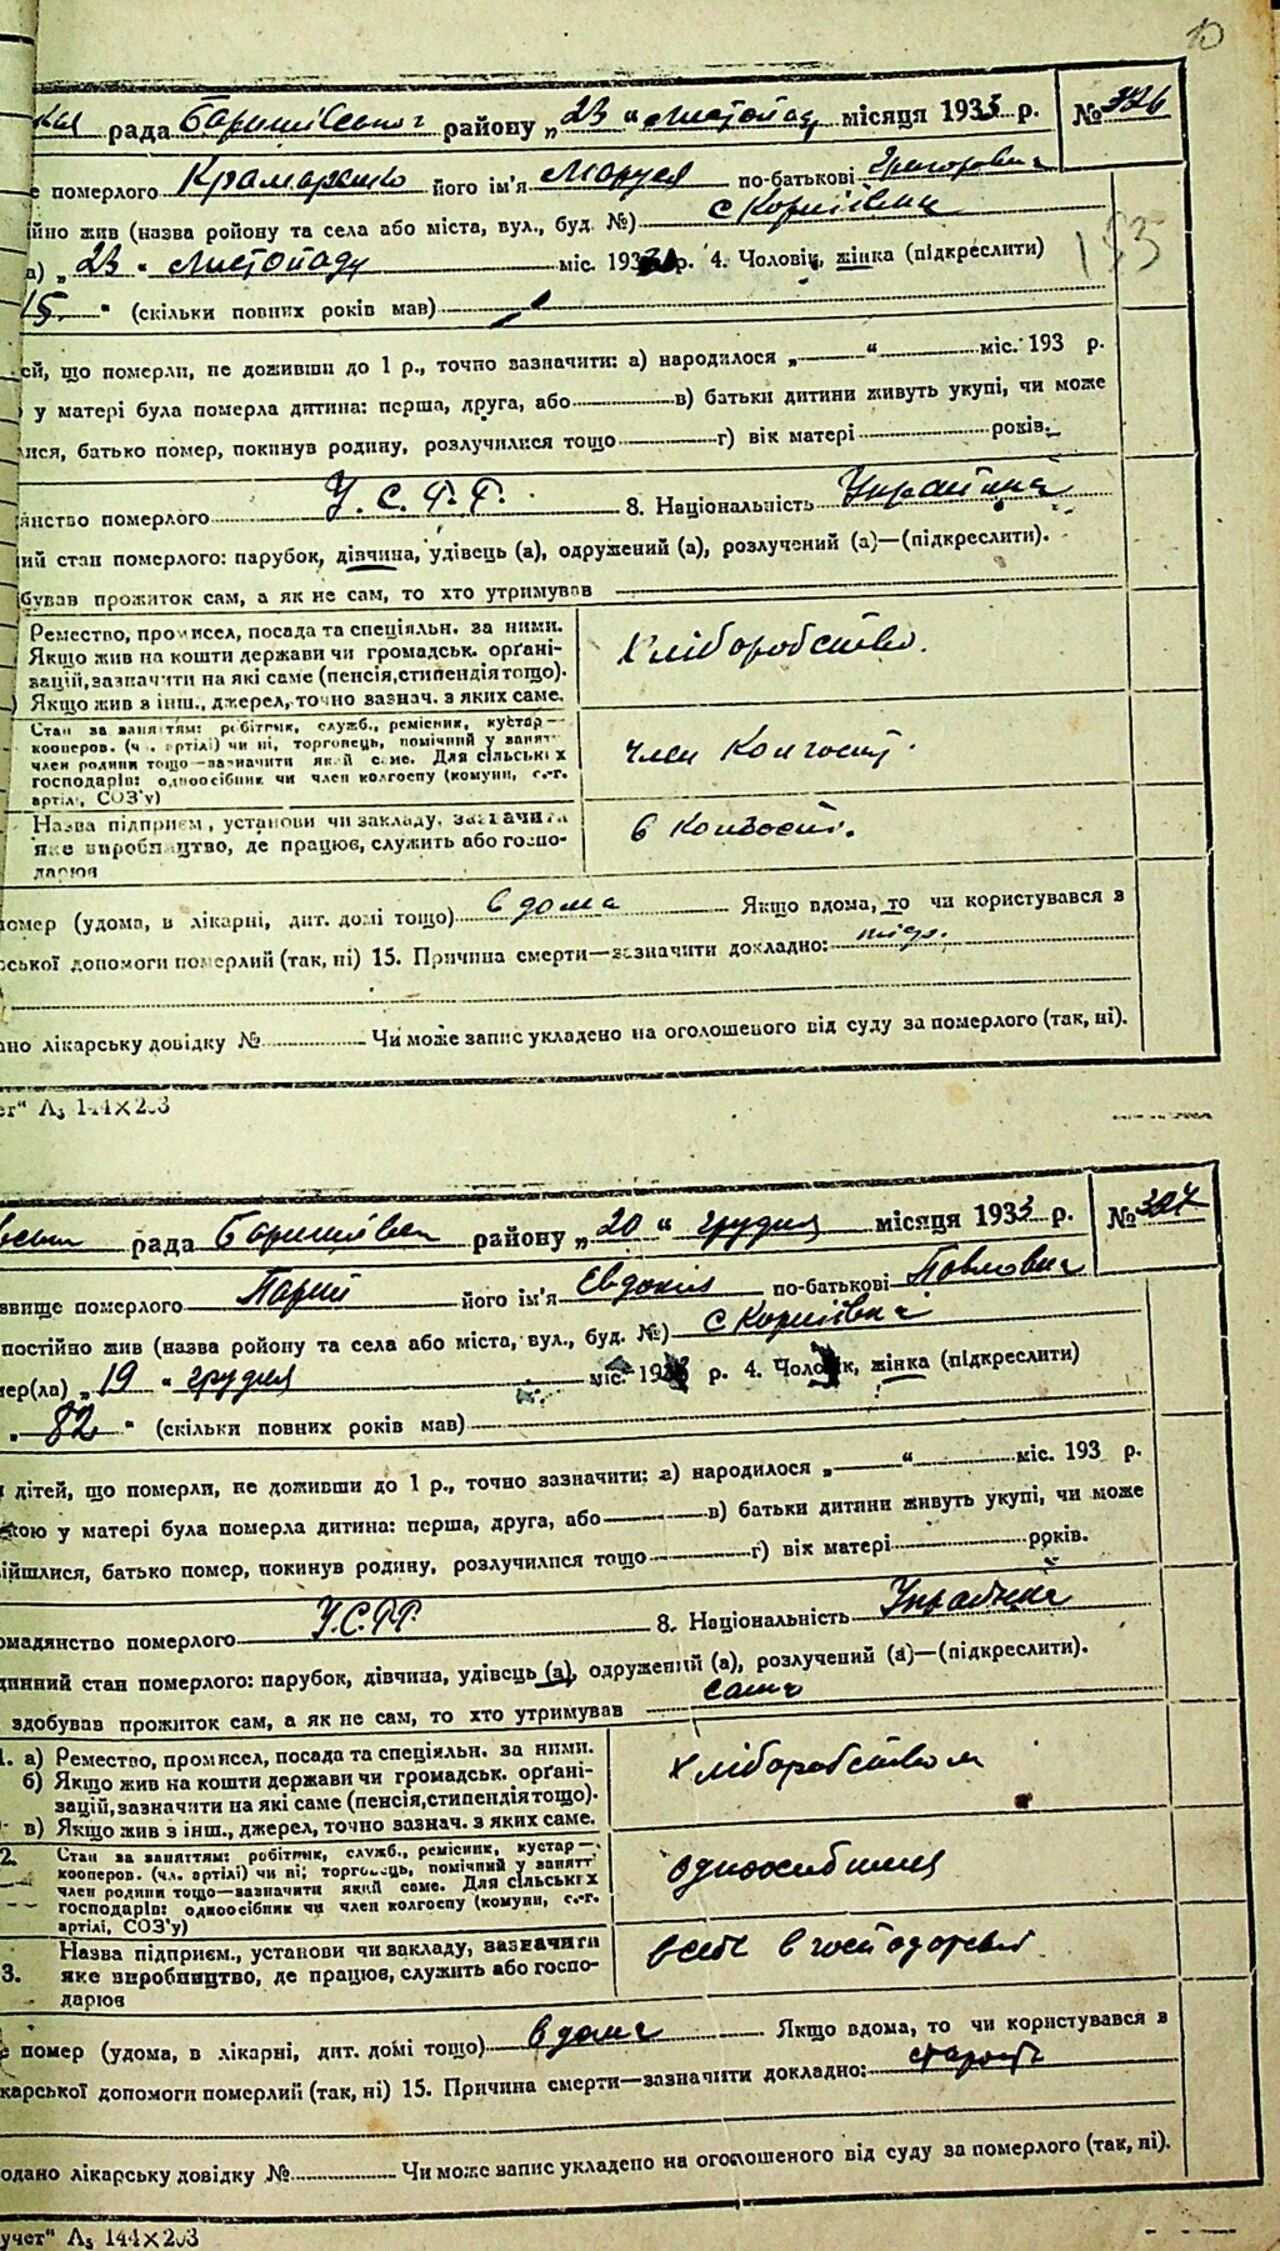 10
рада Баришівського району „23“ Листопаду місяця 1933 р. № 326
е померлого Крамаренко його ім'я Маруся по-батькові Григоровна
ійно жив (назва ройону та села або міста, вул., буд. №) с Корніївки
а) „23“ Листопаду міс. 193 р. 4. Чоловік, жінка (підкреслити)
15 “ (скільки повних років мав)
ей, що померли, не доживши до 1 р., точно зазначити: а) народилося „ “ міс. 193 р.
у матері була померла дитина: перша, друга, або в) батьки дитини живуть укупі, чи може
лися, батько помер, покинув родину, розлучилися тощо г) вік матері років.
янство померлого У.С.Р.Р. 8. Національність Українка
ий стан померлого: парубок, дівчина, удівець (а), одружений (а), розлучений (а)—(підкреслити).
бував прожиток сам, а як не сам, то хто утримував
Ремество, промисел, посада та спеціяльн. за ними.
Якщо жив на кошти держави чи громадськ. орґані-
зацій, зазначити на які саме (пенсія, стипендія тощо).
) Якщо жив з інш., джерел, точно вазнач. з яких саме.
хліборобство.
Стан за заняттям: робітник, служб., ремісник, кустар—
кооперов. (чл. артілі) чи ні, торговець, помічний у занят
член родини тощо—зазначити який саме. Для сільських
господарів: одноосібник чи член колгоспу (комуни, с.-г.
артілі, СОЗ'у)
член колгоспу.
Назва підприєм., установи чи закладу, зазначити
яке виробництво, де працює, служить або госпо-
дарює
в колгоспі.
омер (удома, в лікарні, дит. домі тощо) в дома Якщо вдома, то чи користувався в
рської допомоги померлий (так, ні) 15. Причина смерти—зазначити докладно:
ано лікарську довідку № Чи може запис укладено на оголошеного від суду за померлого (так, ні).
ет“ А₅ 144×203
рада Баришівськ району „20“ грудня місяця 1933 р. № 327
звище померлого Парий його ім'я Евдокія по-батькові Павловна
постійно жив (назва ройону та села або міста, вул., буд. №) с Корніївка
мер(ла) „19“ грудня міс. 193 р. 4. Чоловік, жінка (підкреслити)
„82“ (скільки повних років мав)
дітей, що померли, не доживши до 1 р., точно зазначити: а) народилося „ “ міс. 193 р.
кою у матері була померла дитина: перша, друга, або в) батьки дитини живуть укупі, чи може
ійшлися, батько помер, покинув родину, розлучилися тощо г) вік матері років.
омадянство померлого У.С.Р.Р. 8. Національність Українка
динний стан померлого: парубок, дівчина, удівець (а), одружений (а), розлучений (а)—(підкреслити).
здобував прожиток сам, а як не сам, то хто утримував сама
1. а) Ремество, промисел, посада та спеціяльн. за ними.
б) Якщо жив на кошти держави чи громадськ. орґані-
зацій, зазначити на які саме (пенсія, стипендія тощо).
в) Якщо жив з інш., джерел, точно зазнач. з яких саме.
хліборобством
2. Стан за заняттям: робітник, служб., ремісник, кустар—
кооперов. (чл. артілі) чи ні; торговець, помічний у занятт
член родини тощо—зазначити який саме. Для сільських
господарів: одноосібник чи член колгоспу (комуни, с.-г.
артілі, СОЗ'у)
одноосібниця
3. Назва підприєм., установи чи закладу, зазначити
яке виробництво, де працює, служить або госпо-
дарює
в господарстві
помер (удома, в лікарні, дит. домі тощо) в дома Якщо вдома, то чи користувався в
карської допомоги померлий (так, ні) 15. Причина смерти—зазначити докладно: старость
одано лікарську довідку № Чи може запис укладено на оголошеного від суду за померлого (так, ні).
учет“ А₅ 144×203